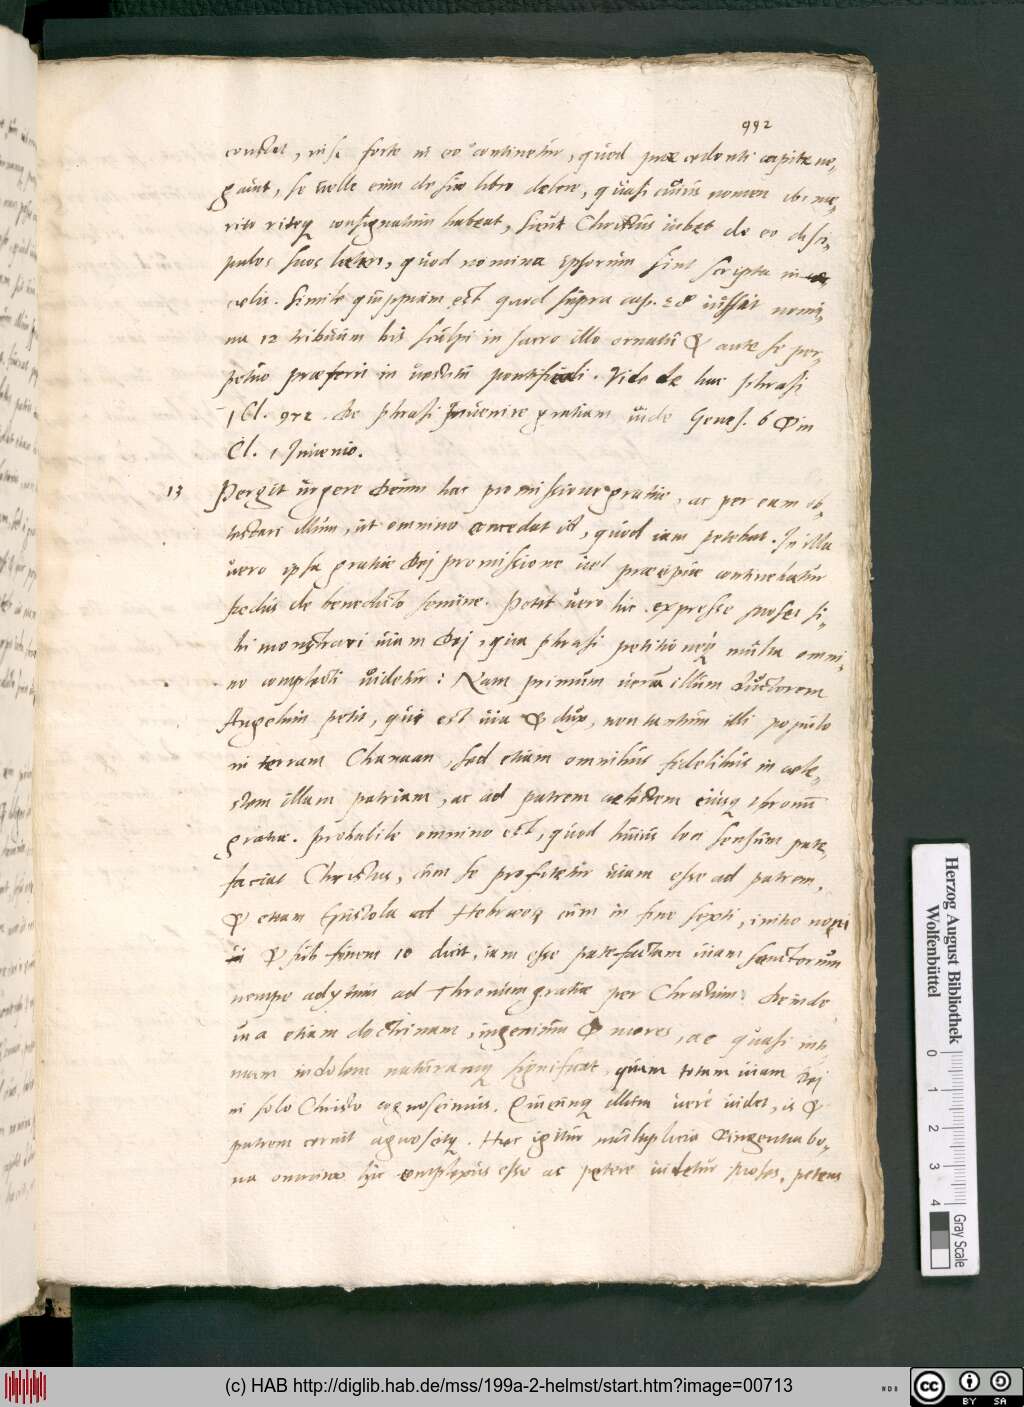 992
constet, nisi forte in eo continetur, quod praecedenti capite ne-
gavit, se velle eum de suo libro delere, quasi cuius nomen ibi me-
rito riteq consignatum habeat, sicut Christus iubet de eo disci-
pulos suos laetari, quod nomina ipsorum sint scripta in
coelis. Simile quippiam est quod supra cap. 28 iussit nomi-
na 12 tribuum bis sculpi in sacro illo ornatu & ante se per-
petuo praeferri in vestitu pontificali. Vide de hac phrasi
1 Cl. 972. De phrasi Invenire gratiam vide Genes. 6 & in
Cl. 1 Invenio.
13 Pergit urgere Deum hac promissione gratiae, ac per eam ob-
testari illum, ut omnino concedat id, quod iam petebat. In illa
vero ipsa gratiae Dei promissione vel praecipue continebatur
foedus de benedicto semine. Petit vero hic expresse Moses si-
bi monstrari viam Dei, qua phrasi petitioneq multa omni-
no complecti videtur: Nam primum verum illum ductorem
Angelum petit, qui est via & dux, non tantum illi populo
in terram Chanaan, sed etiam omnibus fidelibus in coele-
stem illam patriam, ac ad patrem coelestem eiusq thronum
gratiae. Probabile omnino est, quod huius loci sensum pate-
faciat Christus, cum se profitetur viam esse ad patrem,
& etiam Epistola ad Hebraeos cum in fine sexti, initio noni
& sub finem 10 dicit, iam esse patefactam viam sanctorum
nempe adytum ad thronum gratiae per Christum. Deinde
via etiam doctrinam, ingenium & mores, ac quasi inti
mam indolem naturamq significat, quum totam viam Dei
in solo Christo cognoscimus. Quicunq illum vere videt, is &
patrem cernit agnoscitq. Haec igitur multiplicia & ingentia bo-
na omnino hic complexus esse ac petere videtur Moses, petens
Herzog August Bibliothek
Wolfenbüttel
0 1 2 3 4
Gray Scale
(c) HAB http://diglib.hab.de/mss/199a-2-helmst/start.htm?image=00713
cc BY SA